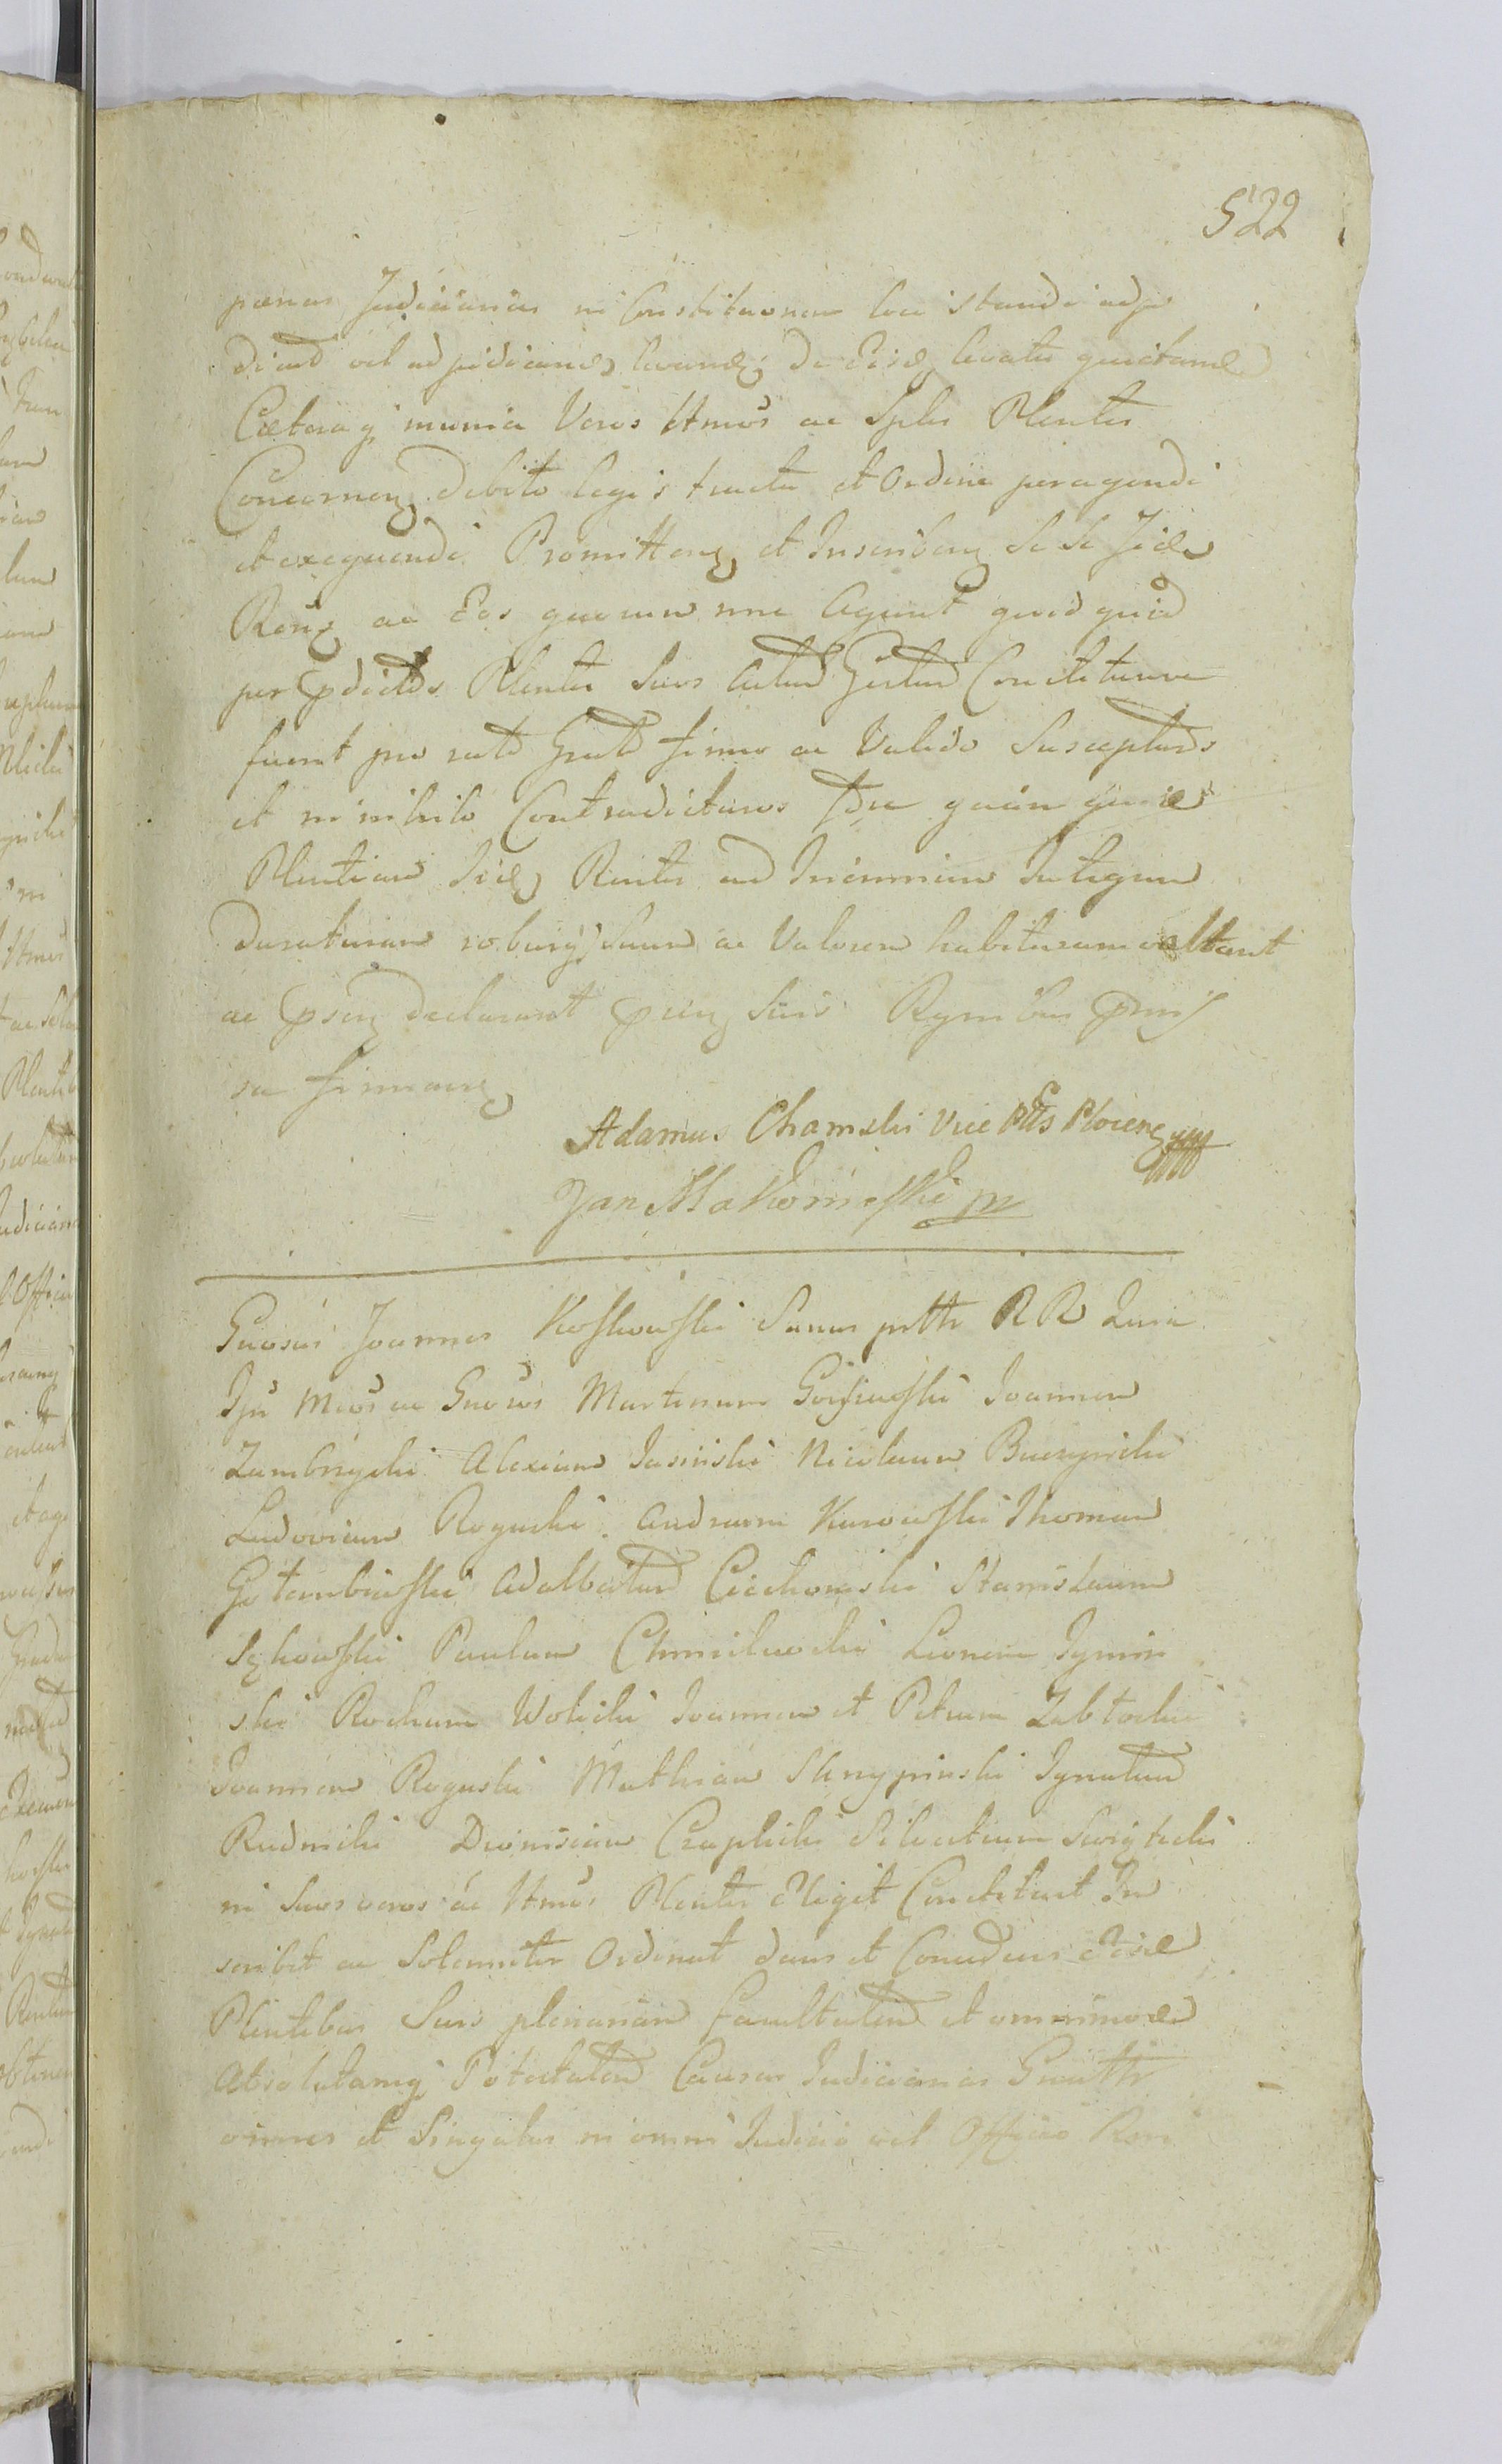 522
pænas Judiciarias in Constitutionem loci standi adju
dicand vel adjudicandas levand: de Eisd. levatis quietand
Cæteraq munia Veros Ittmos ac Sples Plentes
Concernen. debito legis tractu et Ordine peragendi
et exequendi Promitten et Inscriben Se se Iidem
Rens ac Eos quorum nne Agunt quid quid
per pdictos Plentes Suos Actum Gestum Constitutumve
fuerit pro rato Grato firmo ac Valido Suscepturos
et in nihilo Contradicturos
Plentiam Iidem Rentes ad Invicem Integrum
duraturam roburq Suum ac Valorem habituram voluerunt
ac declarant Suis
se firman
Adamus Chamski Vice Plocen
Jan Makomaski m
Gnosus Joannes Koskowski Sanus RR
Mcos ac Gnosos Martinum Joannem
Zambrzycki Alexium Jasinski Nicolaum Buczynski
Ludovicum Roguski Andream Kurowski Thomam
Gołembiewski Adalbertum Ciechomski Stanislaum
Paulum Chmielewski Leonem Zymin
ski Rochum Wolicki Joannem et Petrum Zabłocki
Joannem Roguski Mathiam Skrzypinski Ignatium
Rudnicki Dionisium Czaplicki Silvestrum Swiętecki
in Suos veros ac Ittmos Plentes Elegit Constituit In
scribit ac Solemniter Ordinat dans et Concedens Eisdem
Plentibus Suis plenariam facultatem et omnimodam
Absolutamq Potestatem Causas Judiciarias Gnrltr
omnes et Singulas in omni Judicio vel Officio Reni